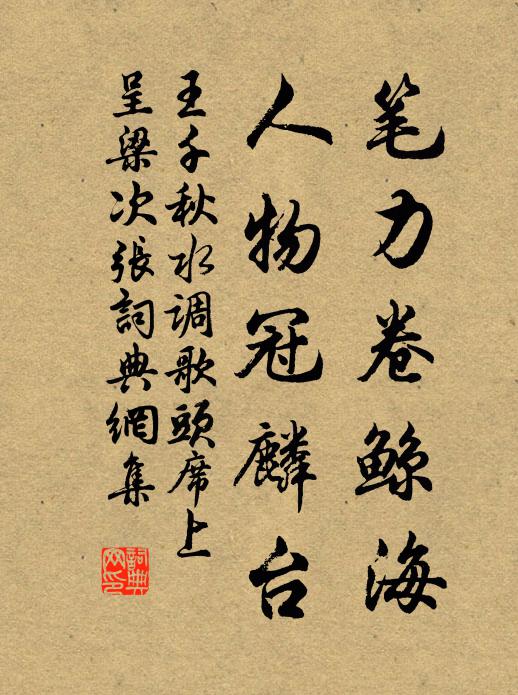 笔力卷鲸海
人物冠麟台
王千秋水调歌頭席上
呈梁次張詞典網集
詞典
网印